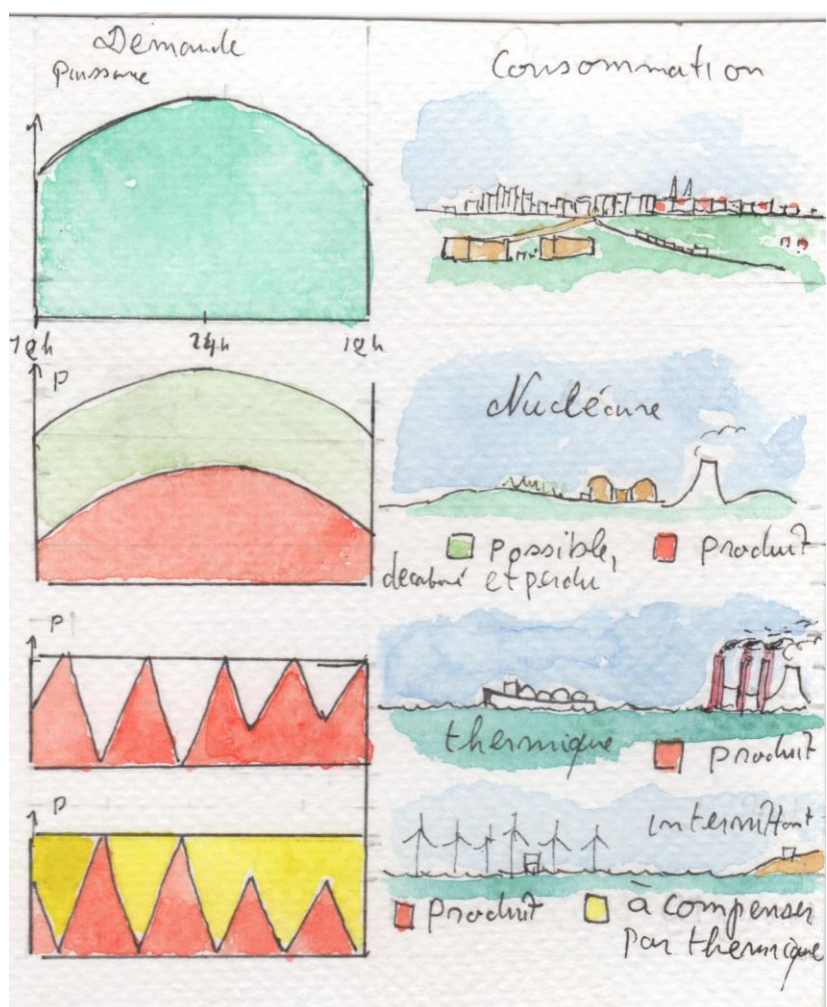 Demande
Puissance
Consommation
12h
24h
12h
P
Nucléaire
Possible,
décarboné et perdu
Produit
P
thermique
Produit
P
intermittent
Produit
à compenser
par thermique